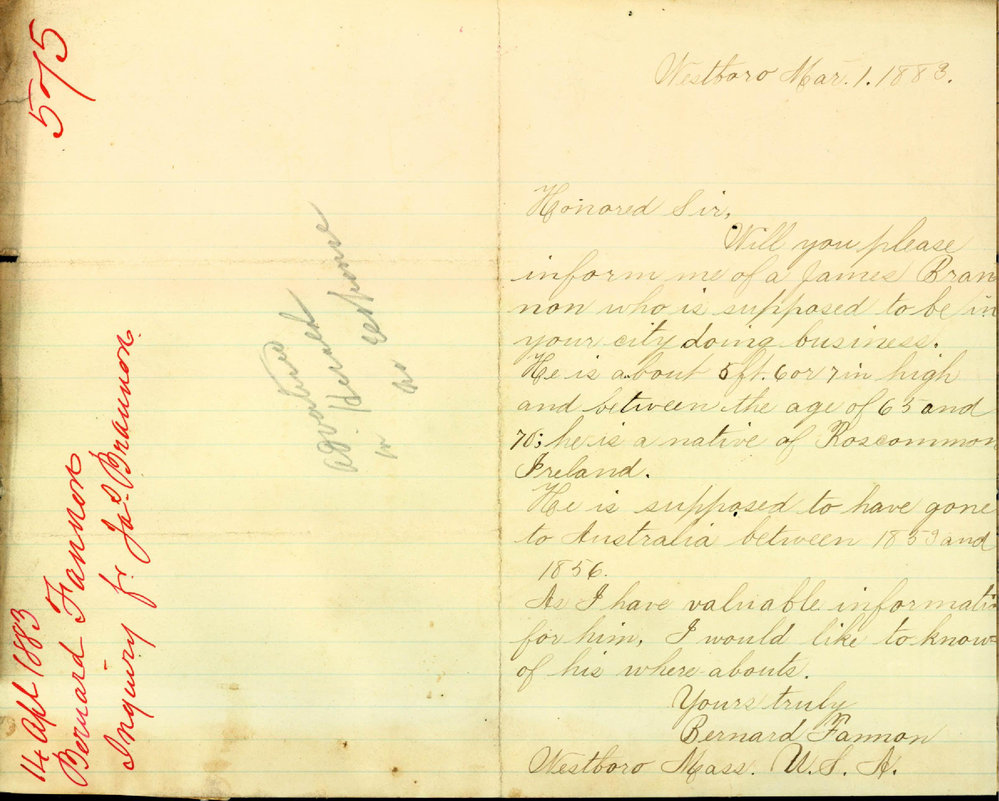 575
14 Apl 1883
Bernard Fannon
Inquiry fr Jas. Brannon.
advertised
Herald
no response
Westboro Mar. 1. 1883.
Honored Sir,
Will you please
inform me of a James Bran
non who is supposed to be in
your city doing business.
He is about 5 ft. 6 or 7 in high
and between the age of 65 and
70; he is a native of Roscommon
Ireland.
He is supposed to have gone
to Australia between 1853 and
1856.
As I have valuable informatio
for him, I would like to know
of his where abouts.
Yours truly
Bernard Fannon
Westboro Mass. U.S.A.